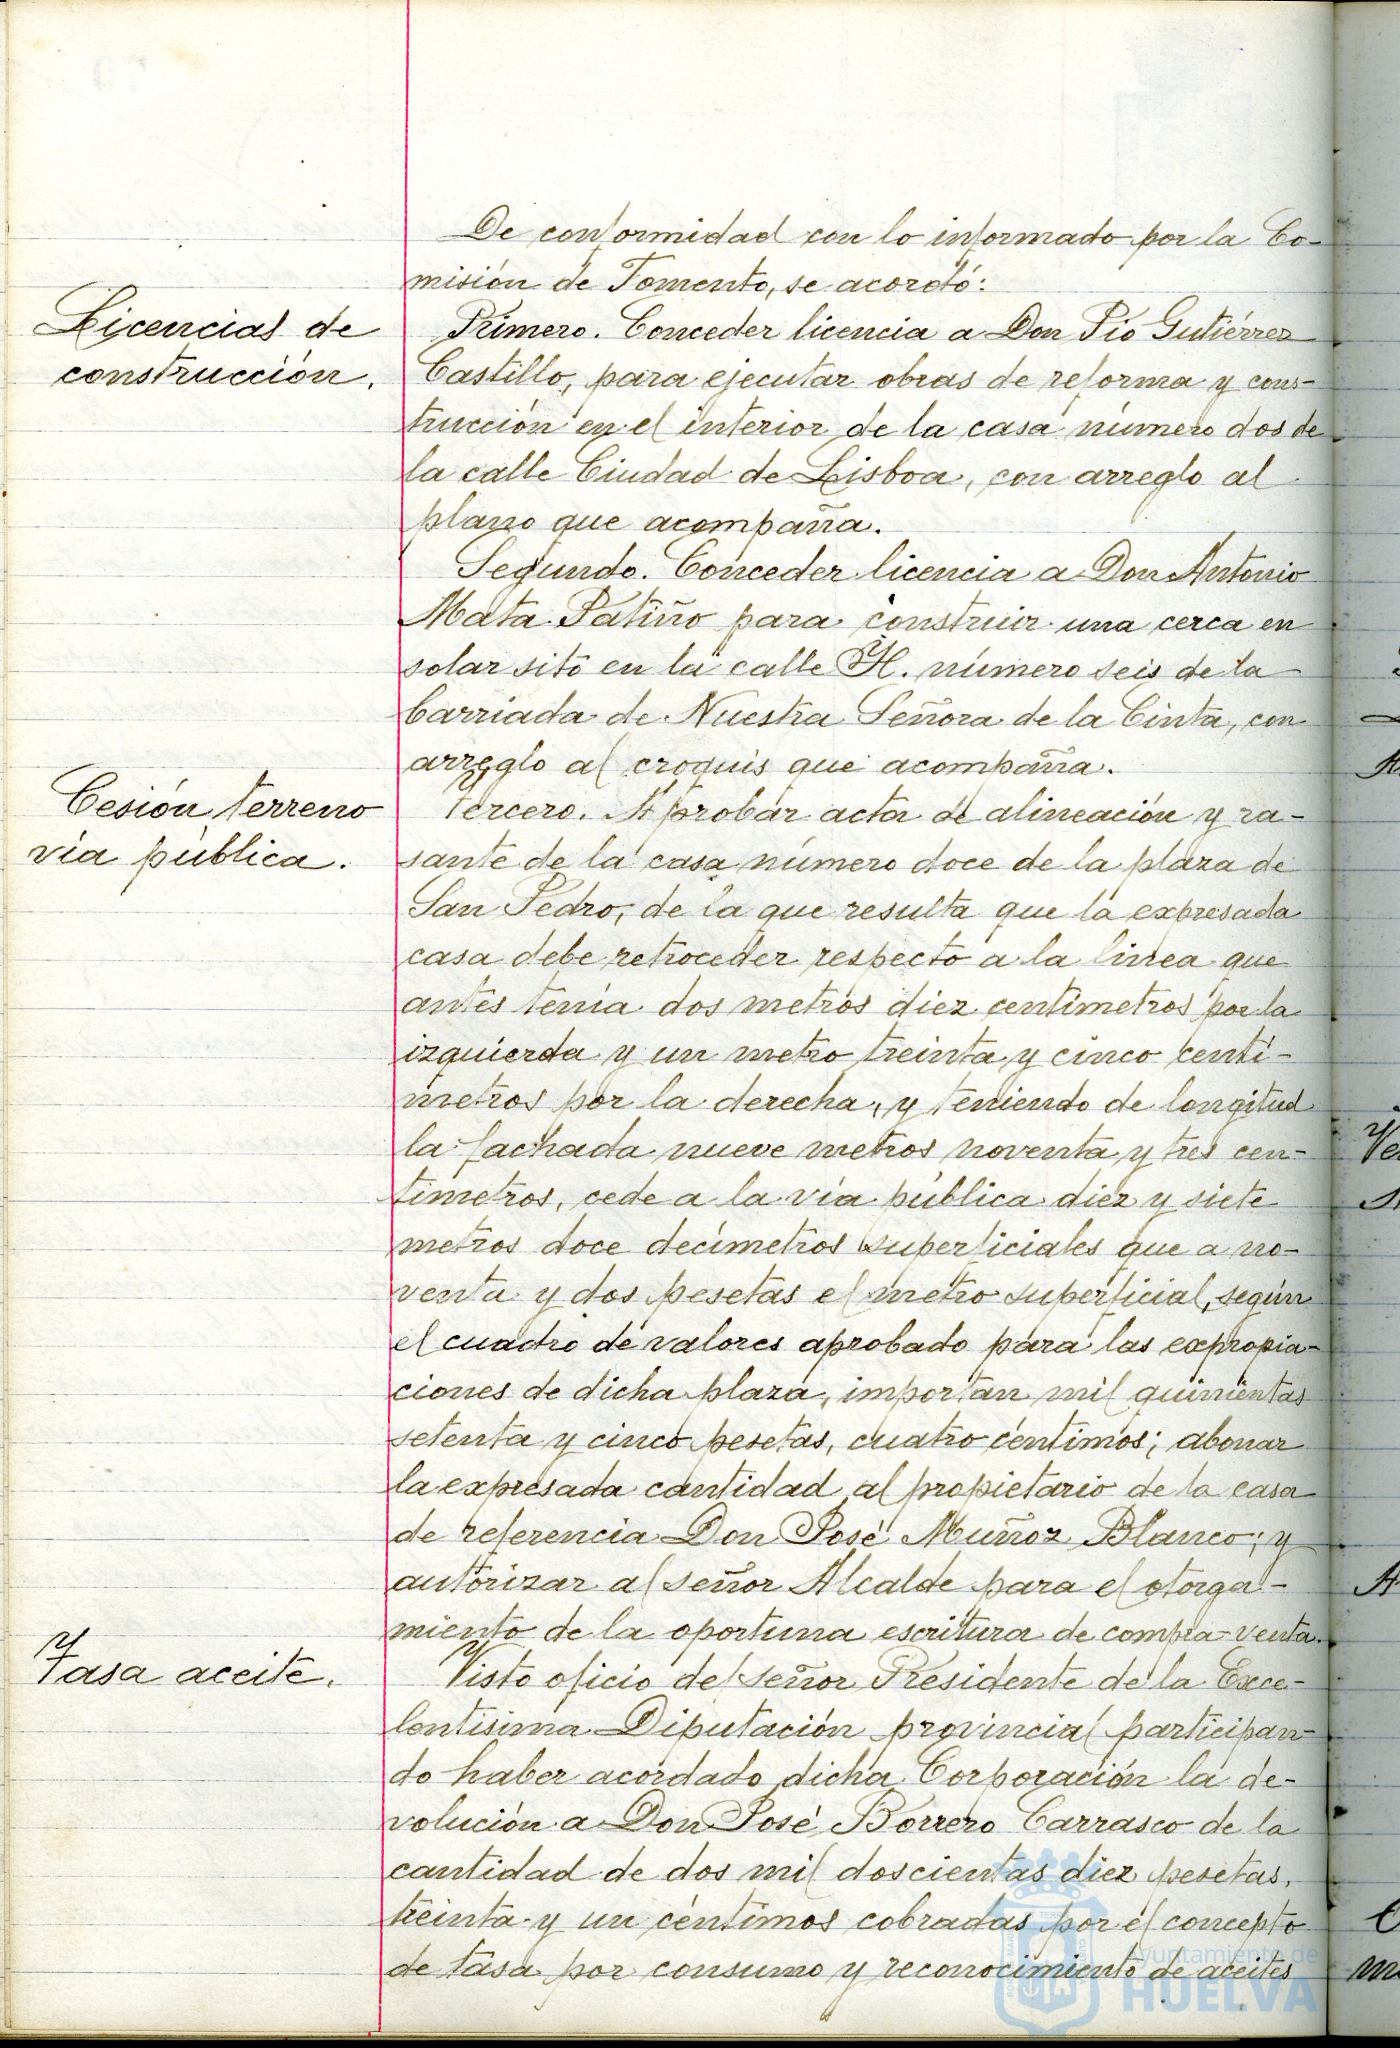 De conformidad con lo informado por la Co-
misión de Fomento, se acordó:
Licencias de
construcción.
Primero. Conceder licencia a Don Pío Gutiérrez
Castillo, para ejecutar obras de reforma y cons-
trucción en el interior de la casa número dos de
la calle Ciudad de Lisboa, con arreglo al
plano que acompaña.
Segundo. Conceder licencia a Don Antonio
Mata Patiño para construir una cerca en
solar sito en la calle H. número seis de la
barriada de Nuestra Señora de la Cinta, con
arreglo al croquis que acompaña.
Cesión terreno
vía pública.
Tercero. Aprobar acta de alineación y ra-
sante de la casa número doce de la plaza de
San Pedro, de la que resulta que la expresada
casa debe retroceder respecto a la línea que
antes tenía dos metros diez centímetros por la
izquierda y un metro treinta y cinco centí-
metros por la derecha, y teniendo de longitud
la fachada nueve metros noventa y tres cen-
tímetros, cede a la vía pública diez y siete
metros doce decímetros superficiales que a no-
venta y dos pesetas el metro superficial, según
el cuadro de valores aprobado para las expropia-
ciones de dicha plaza, importan mil quinientas
setenta y cinco pesetas, cuatro céntimos; abonar
la expresada cantidad al propietario de la casa
de referencia Don José Muñoz Blanco; y
autorizar al señor Alcalde para el otorga-
miento de la oportuna escritura de compra-venta.
Tasa aceite.
Visto oficio del señor Presidente de la Exce-
lentísima Diputación provincial participan-
do haber acordado dicha Corporación la de-
volución a Don José Borrero Carrasco de la
cantidad de dos mil doscientas diez pesetas,
treinta y un céntimos cobradas por el concepto
de tasa por consumo y reconocimiento de aceites
Ayuntamiento de
HUELVA